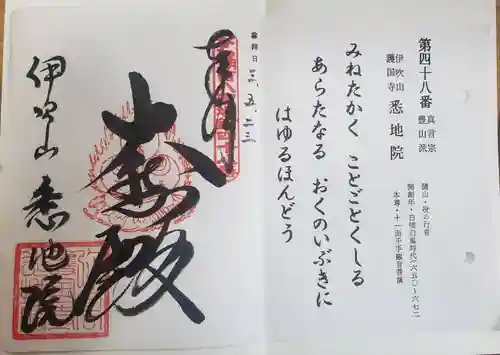 第四十八番 真言宗
豊山派
伊吹山
護国寺 悉地院
開山・役の行者
開創年・白雉白鳳時代(六五〇~六七二
本尊・十一面千手観音菩薩
みねたかく ことごとくしる
あらたなる おくのいぶきに
はゆるほんどう
参拝日 三、五、二三
奉拝
大悲殿
伊吹山 悉地院